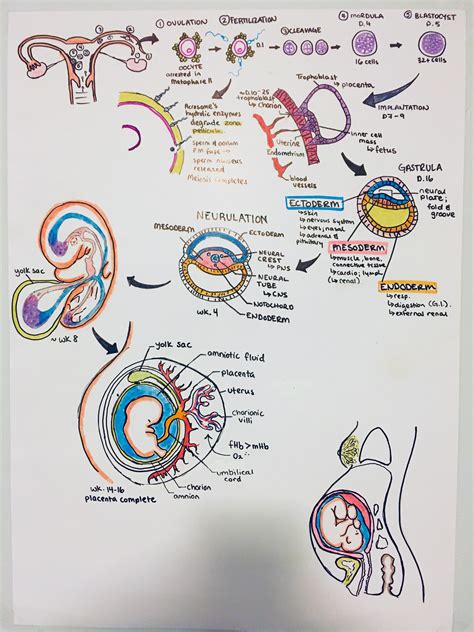 ① OVULATION
② FERTILIZATION
③ CLEAVAGE
④ MORDULA
D.4
⑤ BLASTOCYST
D.5
D.1
OOCYTE
arrested in
metaphase II
16 cells
32+ cells
Acrosome's
hydrolic enzymes
degrade zona
pellicula
sperm & oolum
P.M fuse →
sperm nucleus
released
Meiosis completes
~D.10-25
trophoblast
↳ chorion
Trophoblast
↳ placenta
IMPLANTATION
D7-9
Uterine
Endometrium
inner cell
mass
↳ fetus
blood
vessels
GASTRULA
D.16
neural
plate;
fold &
groove
ECTODERM
↳ skin
↳ nervous system
↳ eyes, nasal
↳ adrenals &
pituitary
MESODERM
↳ muscle, bone,
connective tissue
↳ cardio; lymph,
(renal)
ENDODERM
↳ resp.
↳ digestion (G.I.)
↳ external renal
NEURULATION
MESODERM
ECTODERM
NEURAL
CREST
↳ PNS
NEURAL
TUBE
↳ CNS
NOTOCHORD
ENDODERM
wk. 4
yolk sac
~ wk. 8
yolk sac
amniotic fluid
placenta
uterus
chorionic
villi
fHb > mHb
O₂
umbilical
cord
chorion
amnion
wk. 14-16
placenta complete